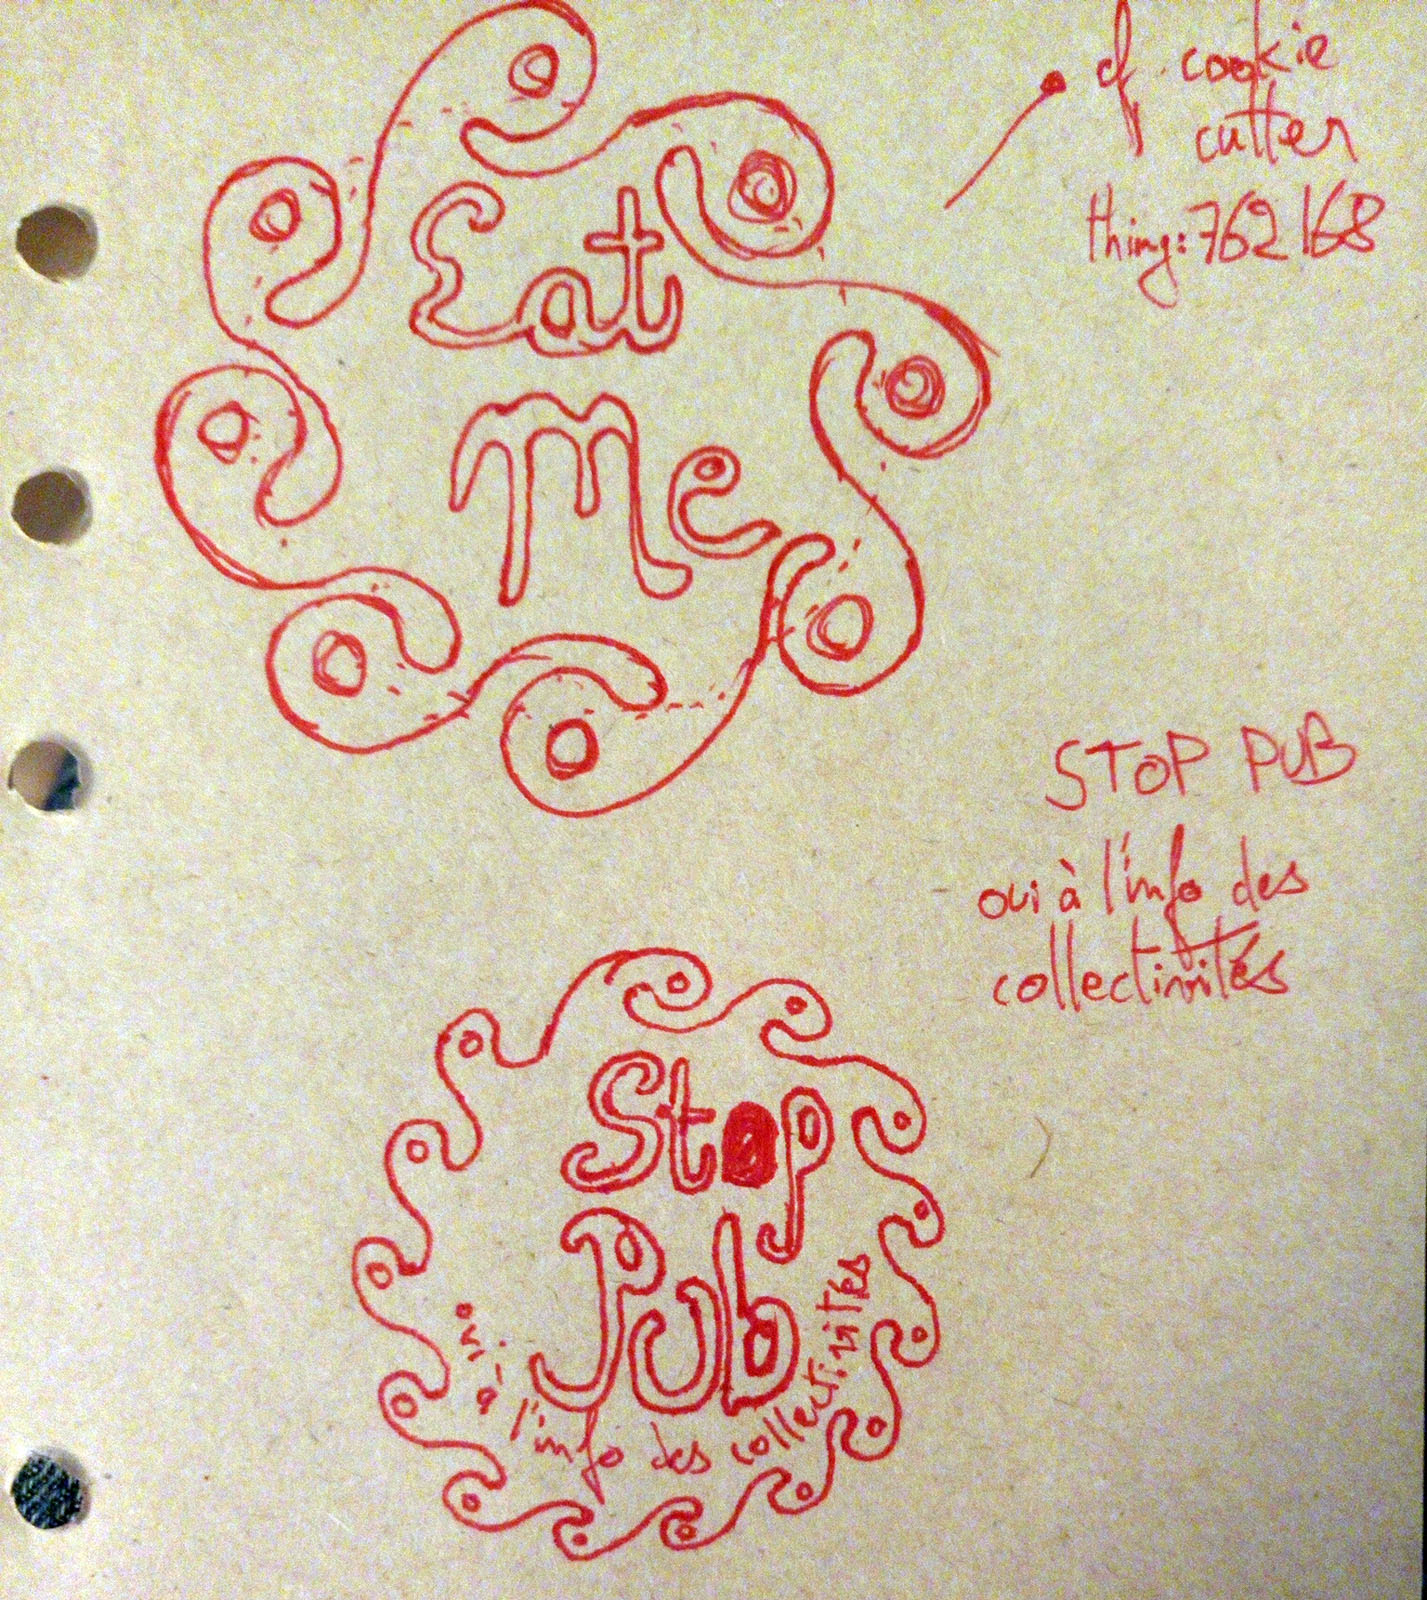 cf. cookie
cutter
thing:762168
Eat
Me
STOP PUB
oui à l'info des
collectivités
Stop
Pub
oui à l'info des collectivités